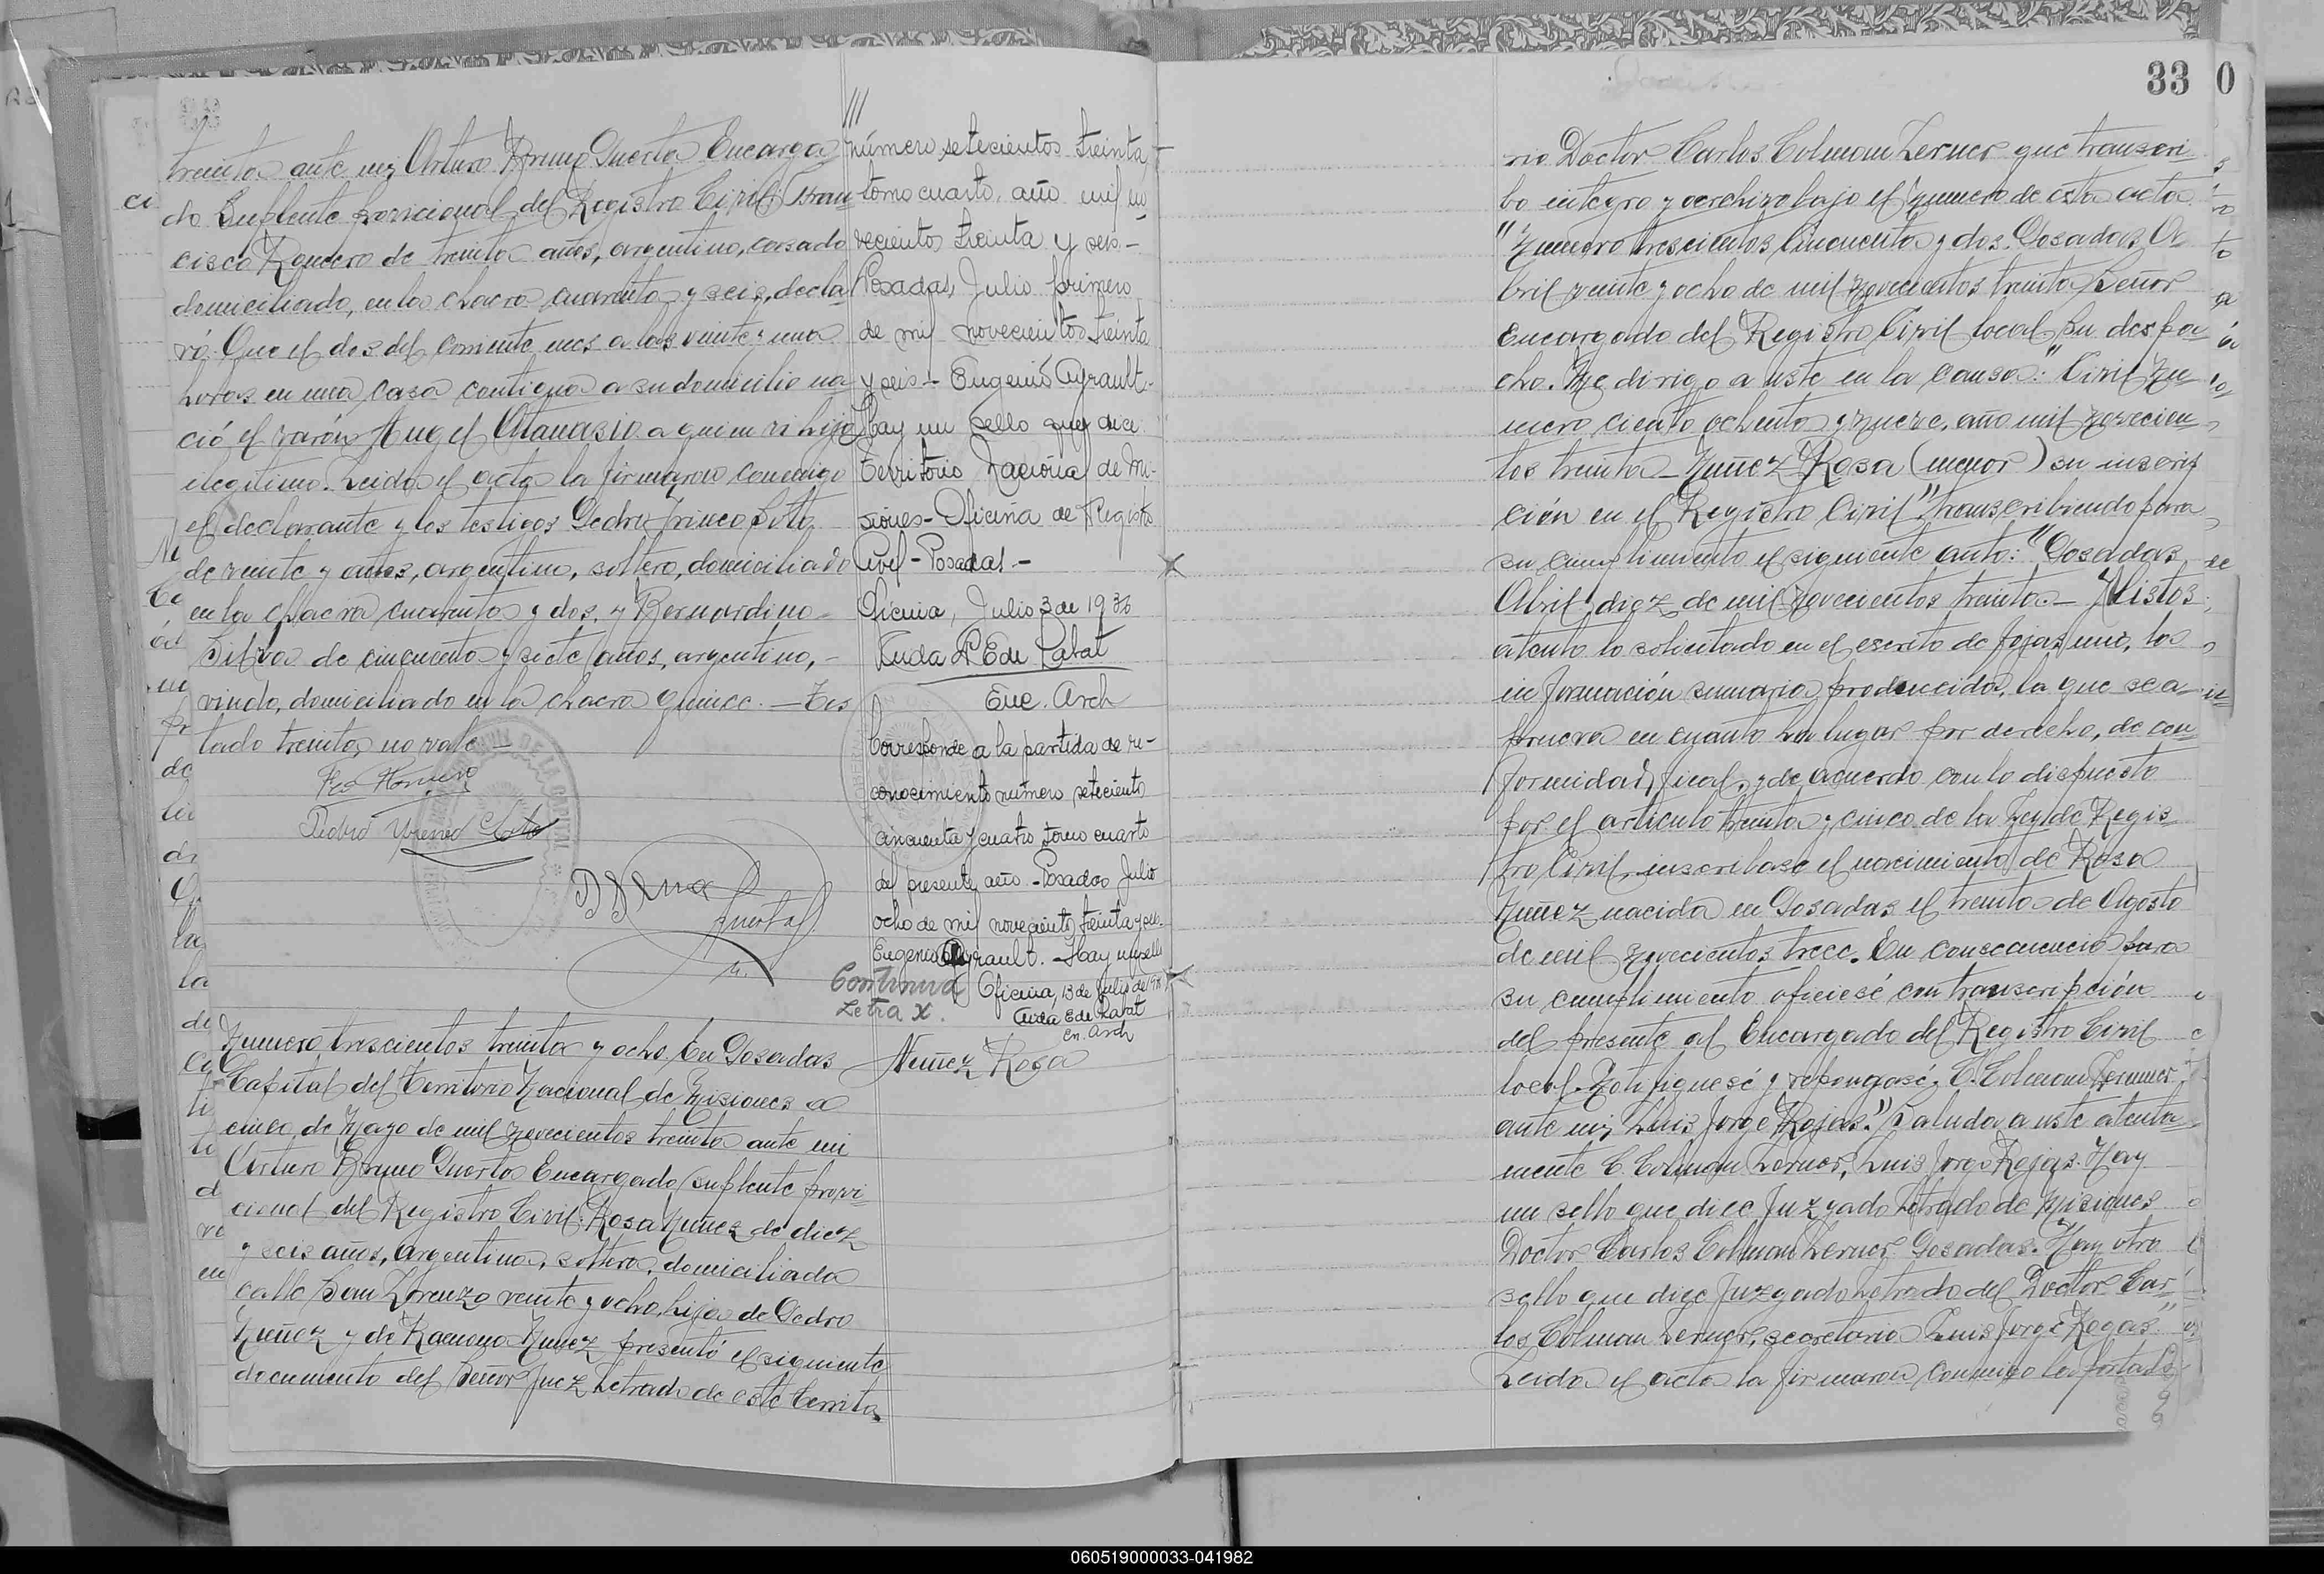 treinta ante mi, Arturo Bruno Huerta Encarga
do Suplente provicional del Registro Civil, Fran
cisco Romero de treinta años, argentino, casado
domiciliado, en la chacra cuarenta y seis, decla
ró: Que el dos del corriente mes a las veinte y una
horas en una casa contigua a su domicilio na
ció el varón Angel Atanasio a quien vi hijo
ilegitimo. Leida el acta la firmaron conmigo
el declarante y los testigos Pedro Irineo Soto
de veinte y años, argentino, soltero, domiciliado
en la chacra cuarenta y dos, y Bernardino
Silva de cincuenta y siete años, argentino,
viudo, domiciliado en la chacra quince. — Tes
tado treinta, no vale —
Fco Romero
Pedro Irineo Soto
B Silva
Huerta
número setecientos treinta
tomo cuarto, año mil no
vecientos treinta y seis —
Posadas, Julio primero
de mil novecientos treinta
y seis — Eugenio Ayrault.
Hay un sello que dice:
Territorio Nacional de Mi-
siones - Oficina de Registro
Civil - Posadas. -
Oficina, Julio 3 de 1936
E de Rabat
Enc. Arch
Corresponde a la partida de re-
conocimiento número setecientos
cincuenta y cuatro tomo cuarto
del presente año. - Posadas Julio
ocho de mil novecientos treinta y seis.
Eugenio Ayrault. - Hay un sello
Continua
Letra X.
Oficina, 13 de Julio de 1936
E de Rabat
En. Arch
Numero trescientos treinta y ocho, En Posadas
Capital del Territorio Nacional de Misiones a
cinco de Mayo de mil novecientos treinta ante mi
Arturo Bruno Huerta Encargado suplente provi
cional del Registro Civil: Rosa Nuñez de diez
y seis años, argentina, soltera, domiciliada
calle San Lorenzo veinte y ocho, hija de Pedro
Nuñez y de Ramona Nuñez presentó el siguiente
documento del Señor Juez Letrado de este territo
Nuñez Rosa
33
rio Doctor Carlos Colman Lerner que transcri
bo integro y archivo bajo el numero de esta acta
"Numero trescientos cincuenta y dos. Posadas, A
bril veinte y ocho de mil novecientos treinta Señor
Encargado del Registro Civil local Su despa
cho. Me dirigo a uste en la causa: "Civil nu
mero ciento ochenta y nueve, año mil novecien
tos treinta — Nuñez Rosa (menor) su inscrip
ción en el Registro Civil" transcribiendo para
su cumplimiento el siguiente auto: "Posadas,
Abril, diez de mil novecientos treinta — Vistos:
atento lo solicitado en el escrito de fojas uno, la
informacion sumaria producida, la que se a
prueva en cuanto ha lugar por derecho, de con
formidad fiscal, y de acuerdo con lo dispuesto
por el articulo treinta y cinco de la Ley de Regis
tro Civil, inscribase el nacimiento de Rosa
Nuñez nacida en Posadas el treinta de Agosto
de mil novecientos trece. En consecuencia para
su cumplimiento oficiesé con transcripción
del presente al Encargado del Registro Civil
local. Notifiquesé y repongasé, C. Colman Lerner
ante mi, Luis Jorge Rojas." Saluda a uste atenta
mente C. Colman Lerner, Luis Jorge Rojas. Hay
un sello que dice Juzgado Letrado de Misiones
Doctor Carlos Colman Lerner Posadas. Hay otro
sello que dice Juzgado Letrado del Doctor Car
los Colman Lerner, secretaria Luis Jorge Rojas"
Leida el acta la firmaron conmigo la porta
060519000033-041982